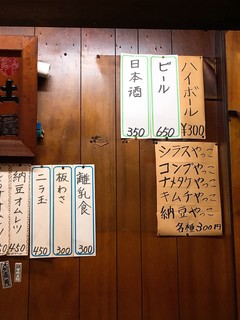 ハイボール
¥300
ビール
650
日本酒
350
シラスやっこ
コンブやっこ
ナメタケやっこ
キムチやっこ
納豆やっこ
各種300円
離乳食
300
板わさ
300
ニラ玉
450
納豆オムレツ
450